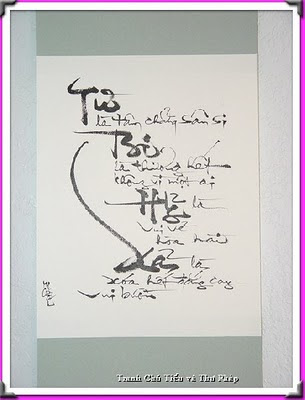 Từ
là tâm chẳng sân si
Bi
là thương hết
chẳng vì một ai
Hỷ là
vui vẻ
hòa hài
Xả là
xóa hết đắng cay
vui buồn
Tranh Chú Tiểu và Thư Pháp